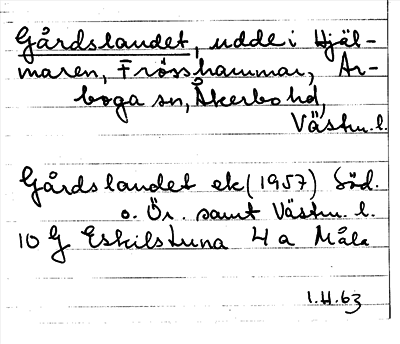 Gårdslandet, udde i Hjäl-
maren, Frösshammar, Ar-
boga sn, Åkerbo hd,
Västm. l.
Gårdslandet ek (1957) Söd.
o. Ör. samt Västm. l.
10 G Eskilstuna 4 a Måla
1.4.63